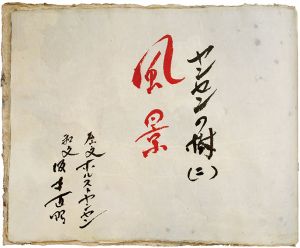 ヤンセンの樹(二)
風景
原文 ホルストヤンセン
和文